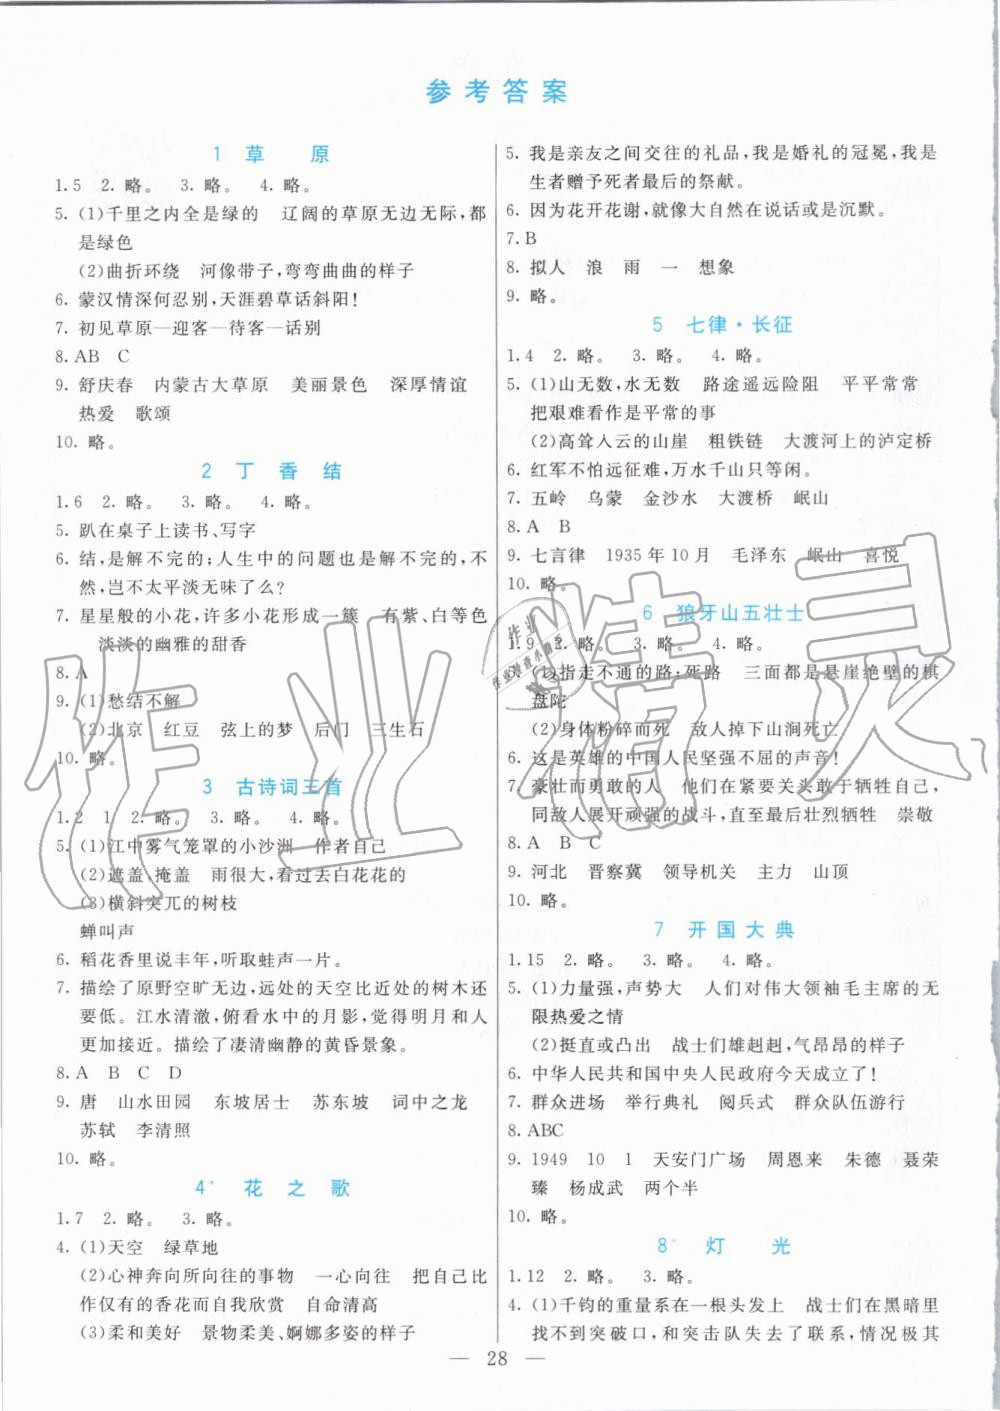 参考答案
1 草 原
1.5 2. 略。 3. 略。 4. 略。
5. (1)千里之内全是绿的 辽阔的草原无边无际,都
是绿色
(2)曲折环绕 河像带子,弯弯曲曲的样子
6. 蒙汉情深何忍别,天涯碧草话斜阳!
7. 初见草原—迎客—待客—话别
8. AB C
9. 舒庆春 内蒙古大草原 美丽景色 深厚情谊
热爱 歌颂
10. 略。
2 丁 香 结
1.6 2. 略。 3. 略。 4. 略。
5. 趴在桌子上读书、写字
6. 结,是解不完的;人生中的问题也是解不完的,不
然,岂不太平淡无味了么?
7. 星星般的小花,许多小花形成一簇 有紫、白等色
淡淡的幽雅的甜香
8. A
9. (1)愁结不解
(2)北京 红豆 弦上的梦 后门 三生石
10. 略。
3 古诗词三首
1.2 1 2. 略。 3. 略。 4. 略。
5. (1)江中雾气笼罩的小沙洲 作者自己
(2)遮盖,掩盖 雨很大,看过去白花花的
(3)横斜突兀的树枝
蝉叫声
6. 稻花香里说丰年,听取蛙声一片。
7. 描绘了原野空旷无边,远处的天空比近处的树木还
要低。江水清澈,俯看水中的月影,觉得明月和人
更加接近。描绘了凄清幽静的黄昏景象。
8. A B C D
9. 唐 山水田园 东坡居士 苏东坡 词中之龙
苏轼 李清照
10. 略。
4* 花 之 歌
1.7 2. 略。 3. 略。
4. (1)天空 绿草地
(2)心神奔向所向往的事物 一心向往 把自己比
作仅有的香花而自我欣赏 自命清高
(3)柔和美好 景物柔美、婀娜多姿的样子
5. 我是亲友之间交往的礼品,我是婚礼的冠冕,我是
生者赠予死者最后的祭献。
6. 因为花开花谢,就像大自然在说话或是沉默。
7. B
8. 拟人 浪 雨 一 想象
9. 略。
5 七律·长征
1.4 2. 略。 3. 略。 4. 略。
5. (1)山无数,水无数 路途遥远险阻 平平常常
把艰难看作是平常的事
(2)高耸入云的山崖 粗铁链 大渡河上的泸定桥
6. 红军不怕远征难,万水千山只等闲。
7. 五岭 乌蒙 金沙水 大渡桥 岷山
8. A B
9. 七言律 1935年10月 毛泽东 岷山 喜悦
10. 略。
6 狼牙山五壮士
1.9 2. 略。 3. 略。 4. 略。
5. (1)指走不通的路;死路 三面都是悬崖绝壁的棋
盘陀
(2)身体粉碎而死 敌人掉下山涧死亡
6. 这是英雄的中国人民坚强不屈的声音!
7. 豪壮而勇敢的人 他们在紧要关头敢于牺牲自己,
同敌人展开顽强的战斗,直至最后壮烈牺牲 崇敬
8. A B C
9. 河北 晋察冀 领导机关 主力 山顶
10. 略。
7 开国大典
1.15 2. 略。 3. 略。 4. 略。
5. (1)力量强,声势大 人们对伟大领袖毛主席的无
限热爱之情
(2)挺直或凸出 战士们雄赳赳,气昂昂的样子
6. 中华人民共和国中央人民政府今天成立了!
7. 群众进场 举行典礼 阅兵式 群众队伍游行
8. ABC
9. 1949 10 1 天安门广场 周恩来 朱德 聂荣
臻 杨成武 两个半
10. 略。
8* 灯 光
1.12 2. 略。 3. 略。
4. (1)千钧的重量系在一根头发上 战士们在黑暗里
找不到突破口,和突击队失去了联系,情况极其
— 28 —
作业精灵